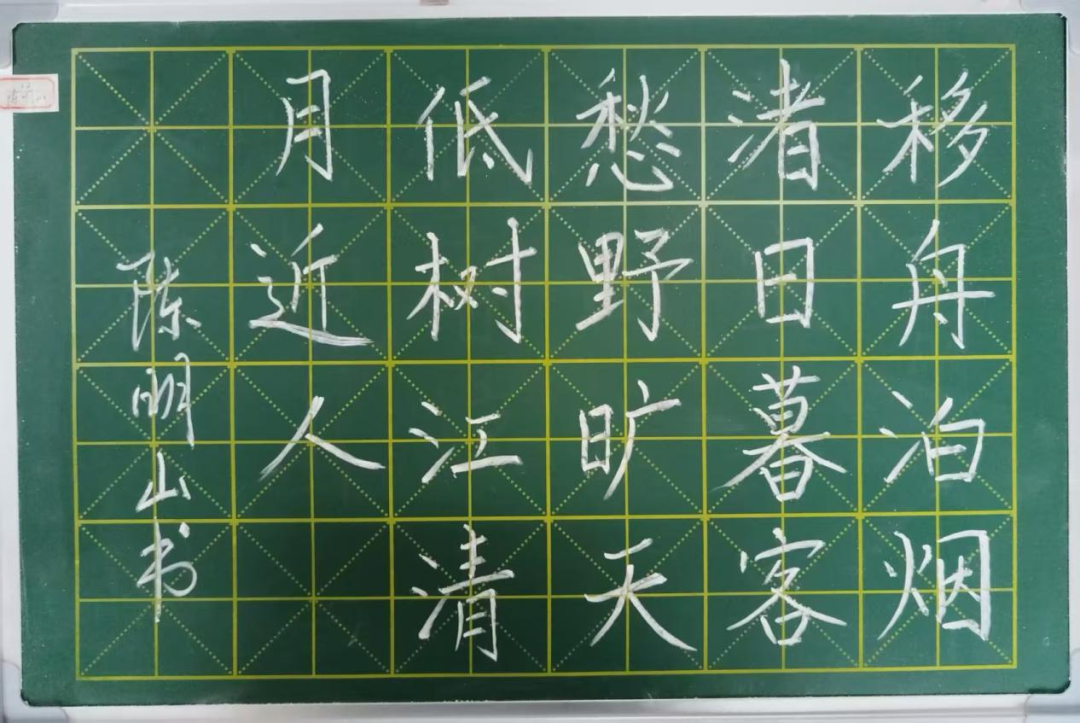 移舟泊烟
渚日暮客
愁野旷天
低树江清
月近人
陈明山书